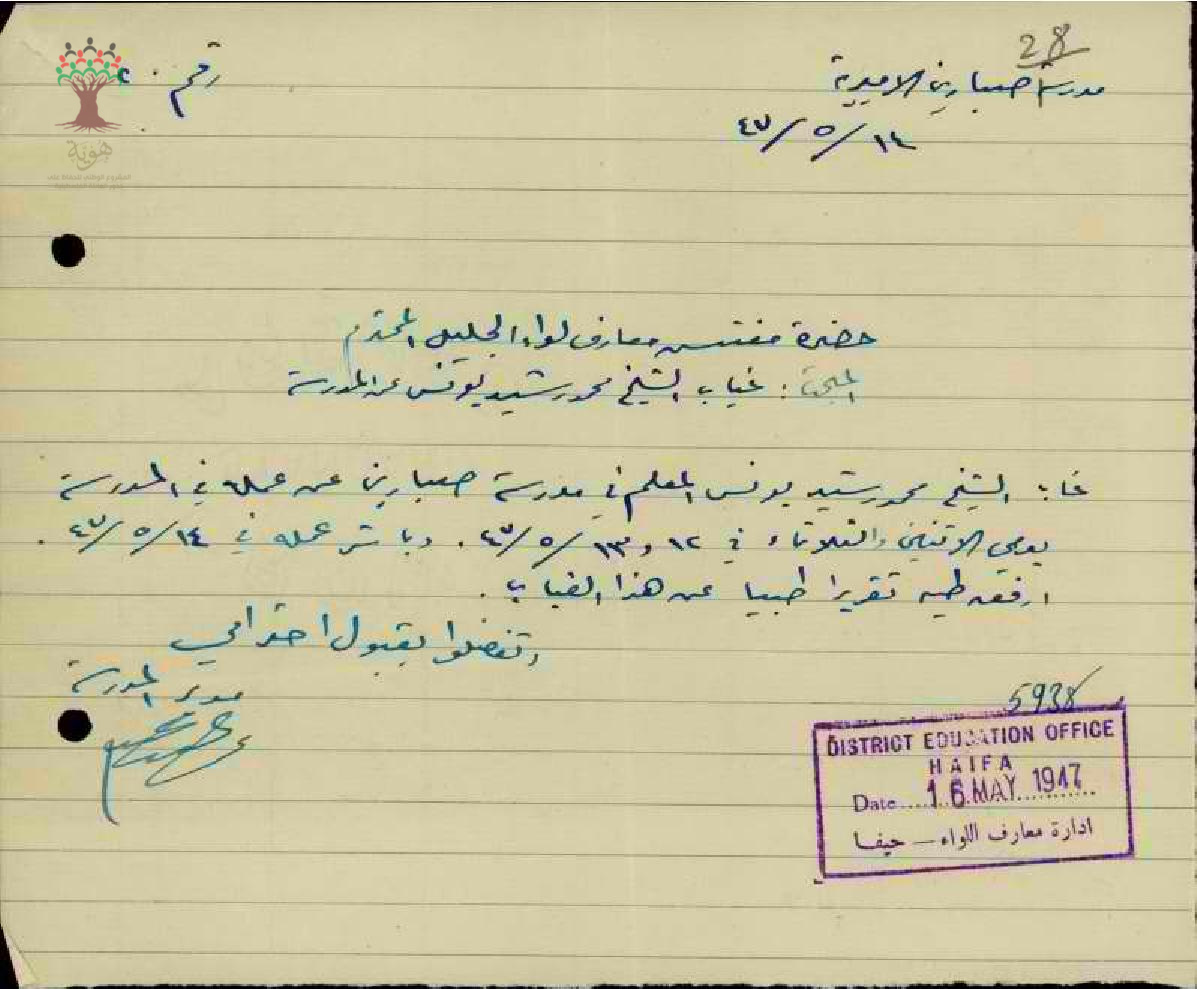 28
مدرسة صبارين الاميرية
١٤/٥/٤٧
رقم
هوية
حضرة مفتش معارف لواء الجليل المحترم
المبحث : غياب الشيخ محمد رشيد يونس عن المدرسة
غاب الشيخ محمد رشيد يونس المعلم في مدرسة صبارين عن عمله في المدرسة
يومي الاثنين والثلاثاء في ١٢ و ١٣/٥/٤٧. وباشر عمله في ١٤/٥/٤٧.
ارفقه طيه تقريرا طبيا عن هذا الغياب.
وتفضلوا بقبول احترامي
مدير المدرسة
5938
DISTRICT EDUCATION OFFICE
HAIFA
Date....16.MAY...1947
ادارة معارف اللواء — حيفا